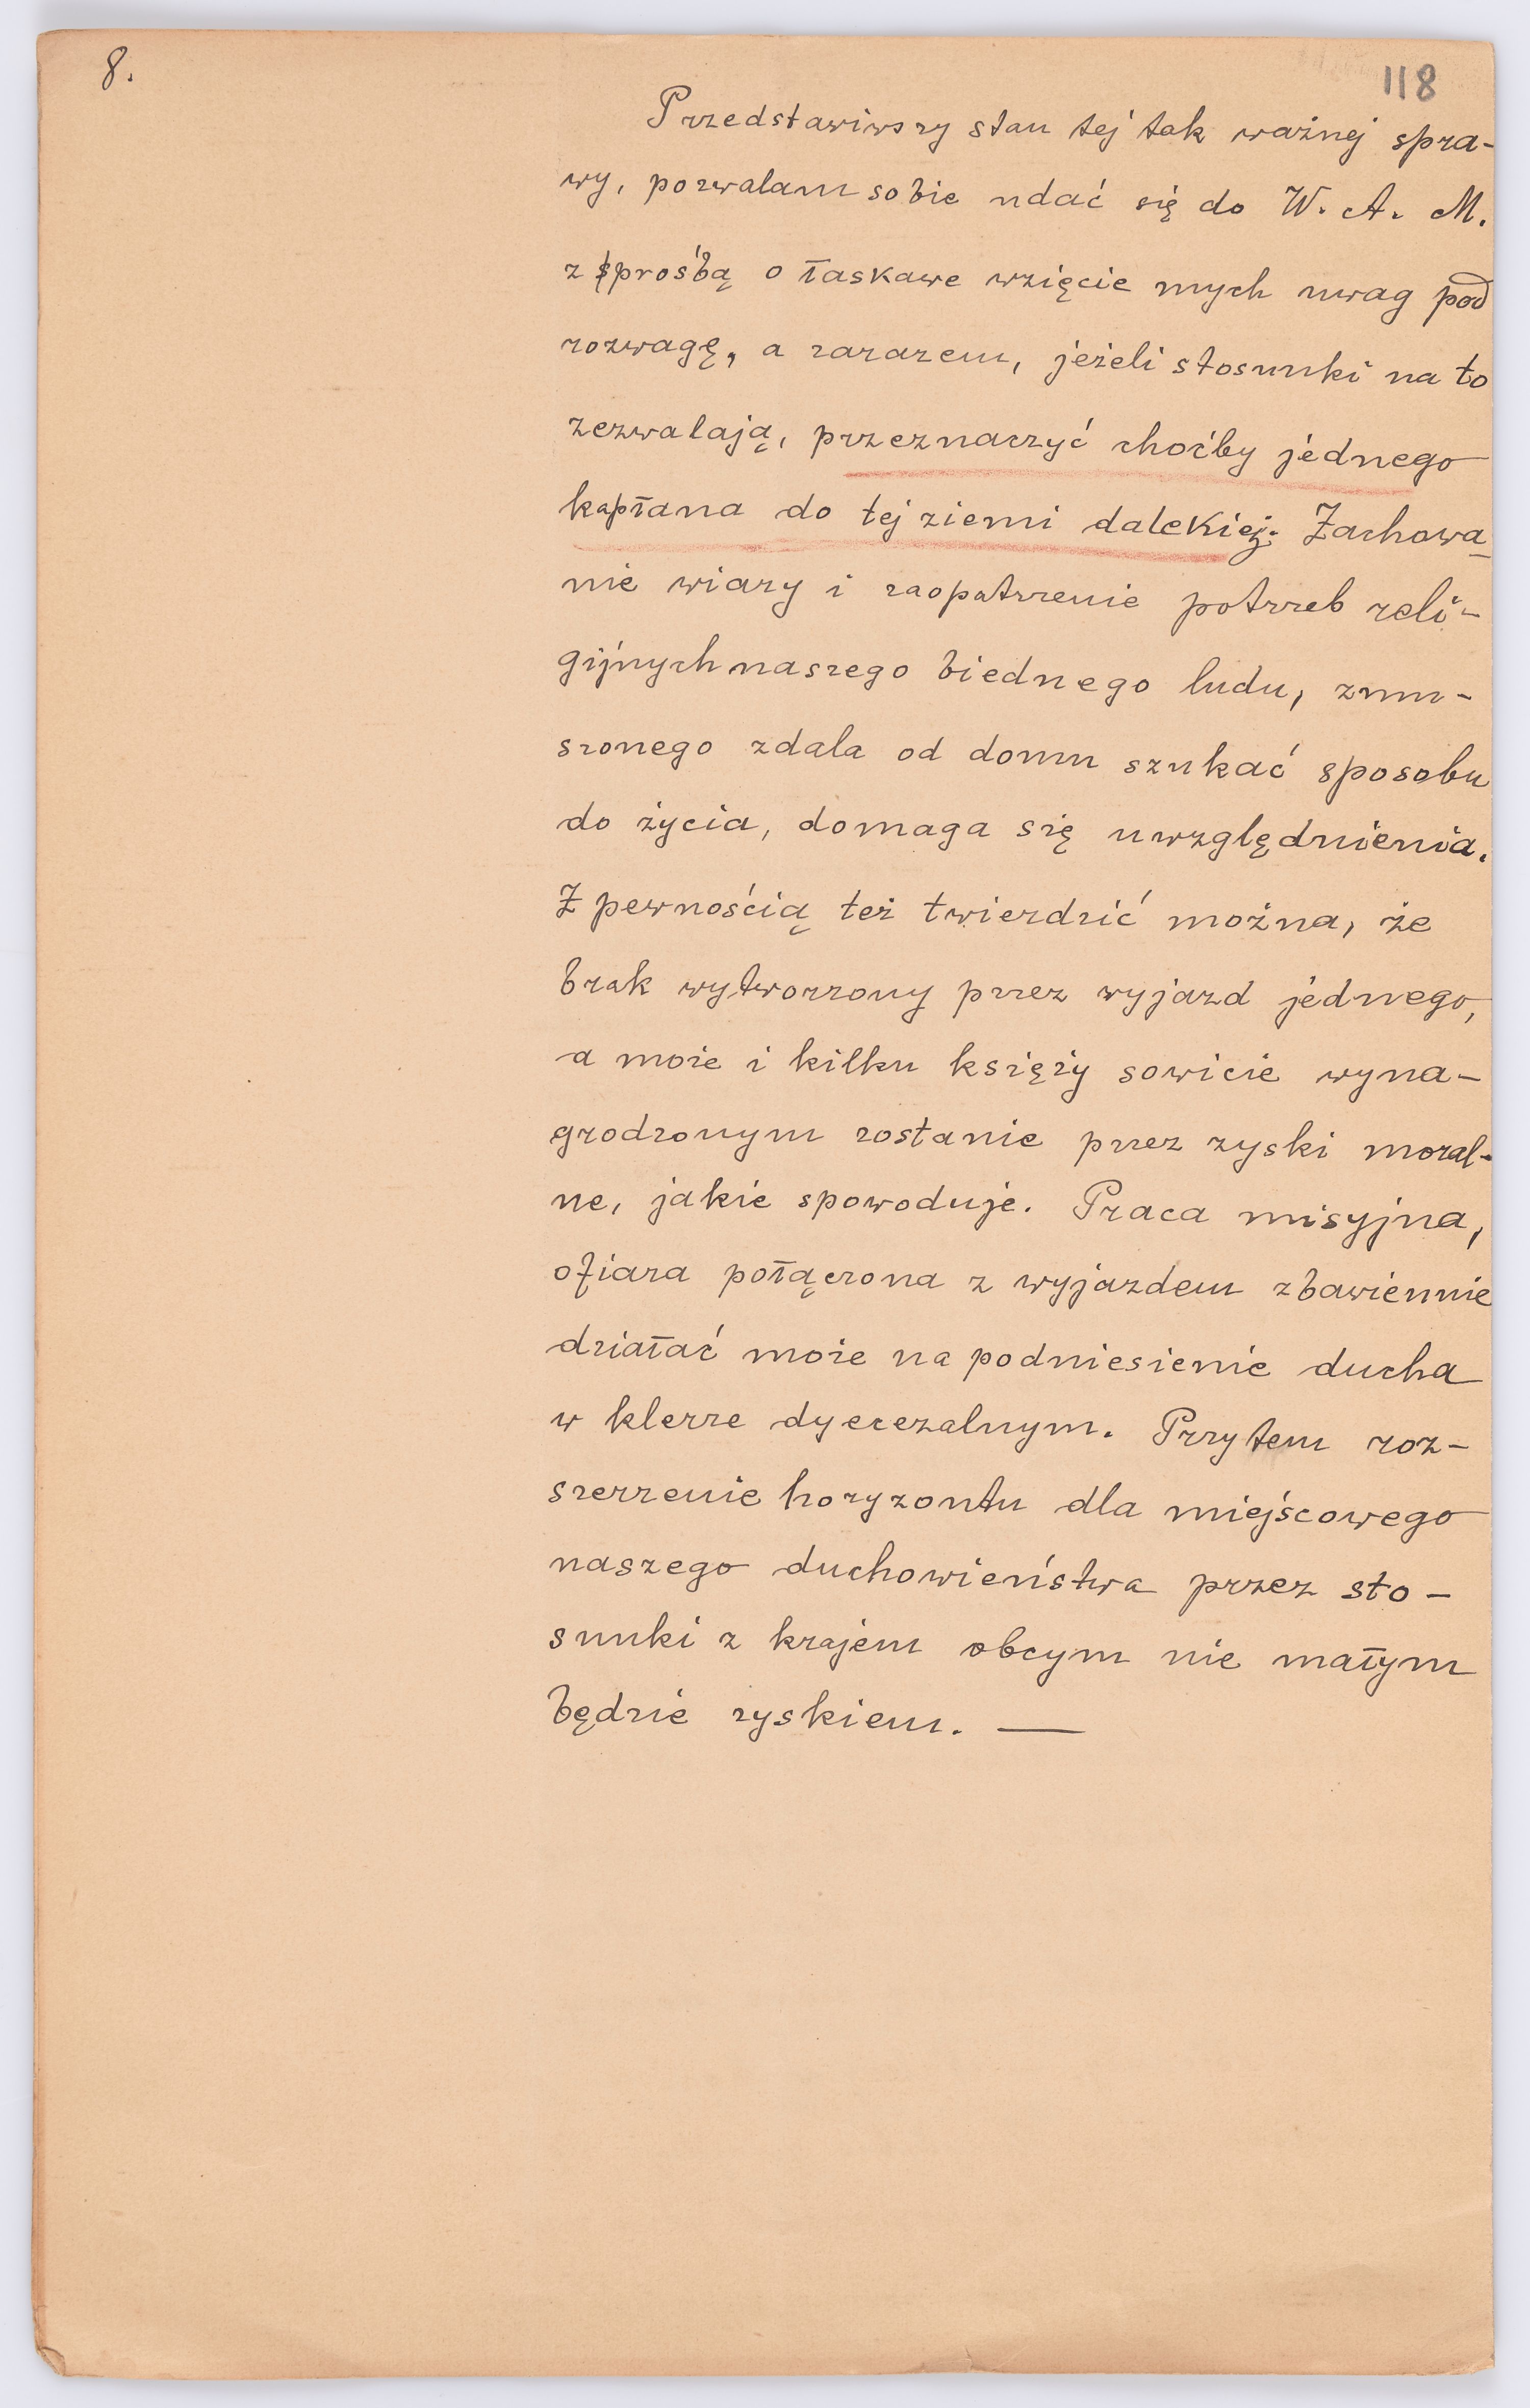 8.
118
Przedstawiwszy stan tej tak ważnej spra-
wy, pozwalam sobie udać się do W. A. M.
z prośbą o łaskawe wzięcie mych uwag pod
rozwagę, a zarazem, jeżeli stosunki na to
zezwalają, przeznaczyć choćby jednego
kapłana do tej ziemi dalekiej. Zachowa-
nie wiary i zaopatrzenie potrzeb reli-
gijnych naszego biednego ludu, zmu-
szonego zdala od domu szukać sposobu
do życia, domaga się uwzględnienia.
Z pewnością też twierdzić można, że
brak wytworzony przez wyjazd jednego,
a może i kilku księży sowicie wyna-
grodzonym zostanie przez zyski moral-
ne, jakie spowoduje. Praca misyjna,
ofiara połączona z wyjazdem zbawiennie
działać może na podniesienie ducha
w klerze dyecezalnym. Przytem roz-
szerzenie horyzontu dla miejscowego
naszego duchowieństwa przez sto-
sunki z krajem obcym nie małym
będzie zyskiem. —